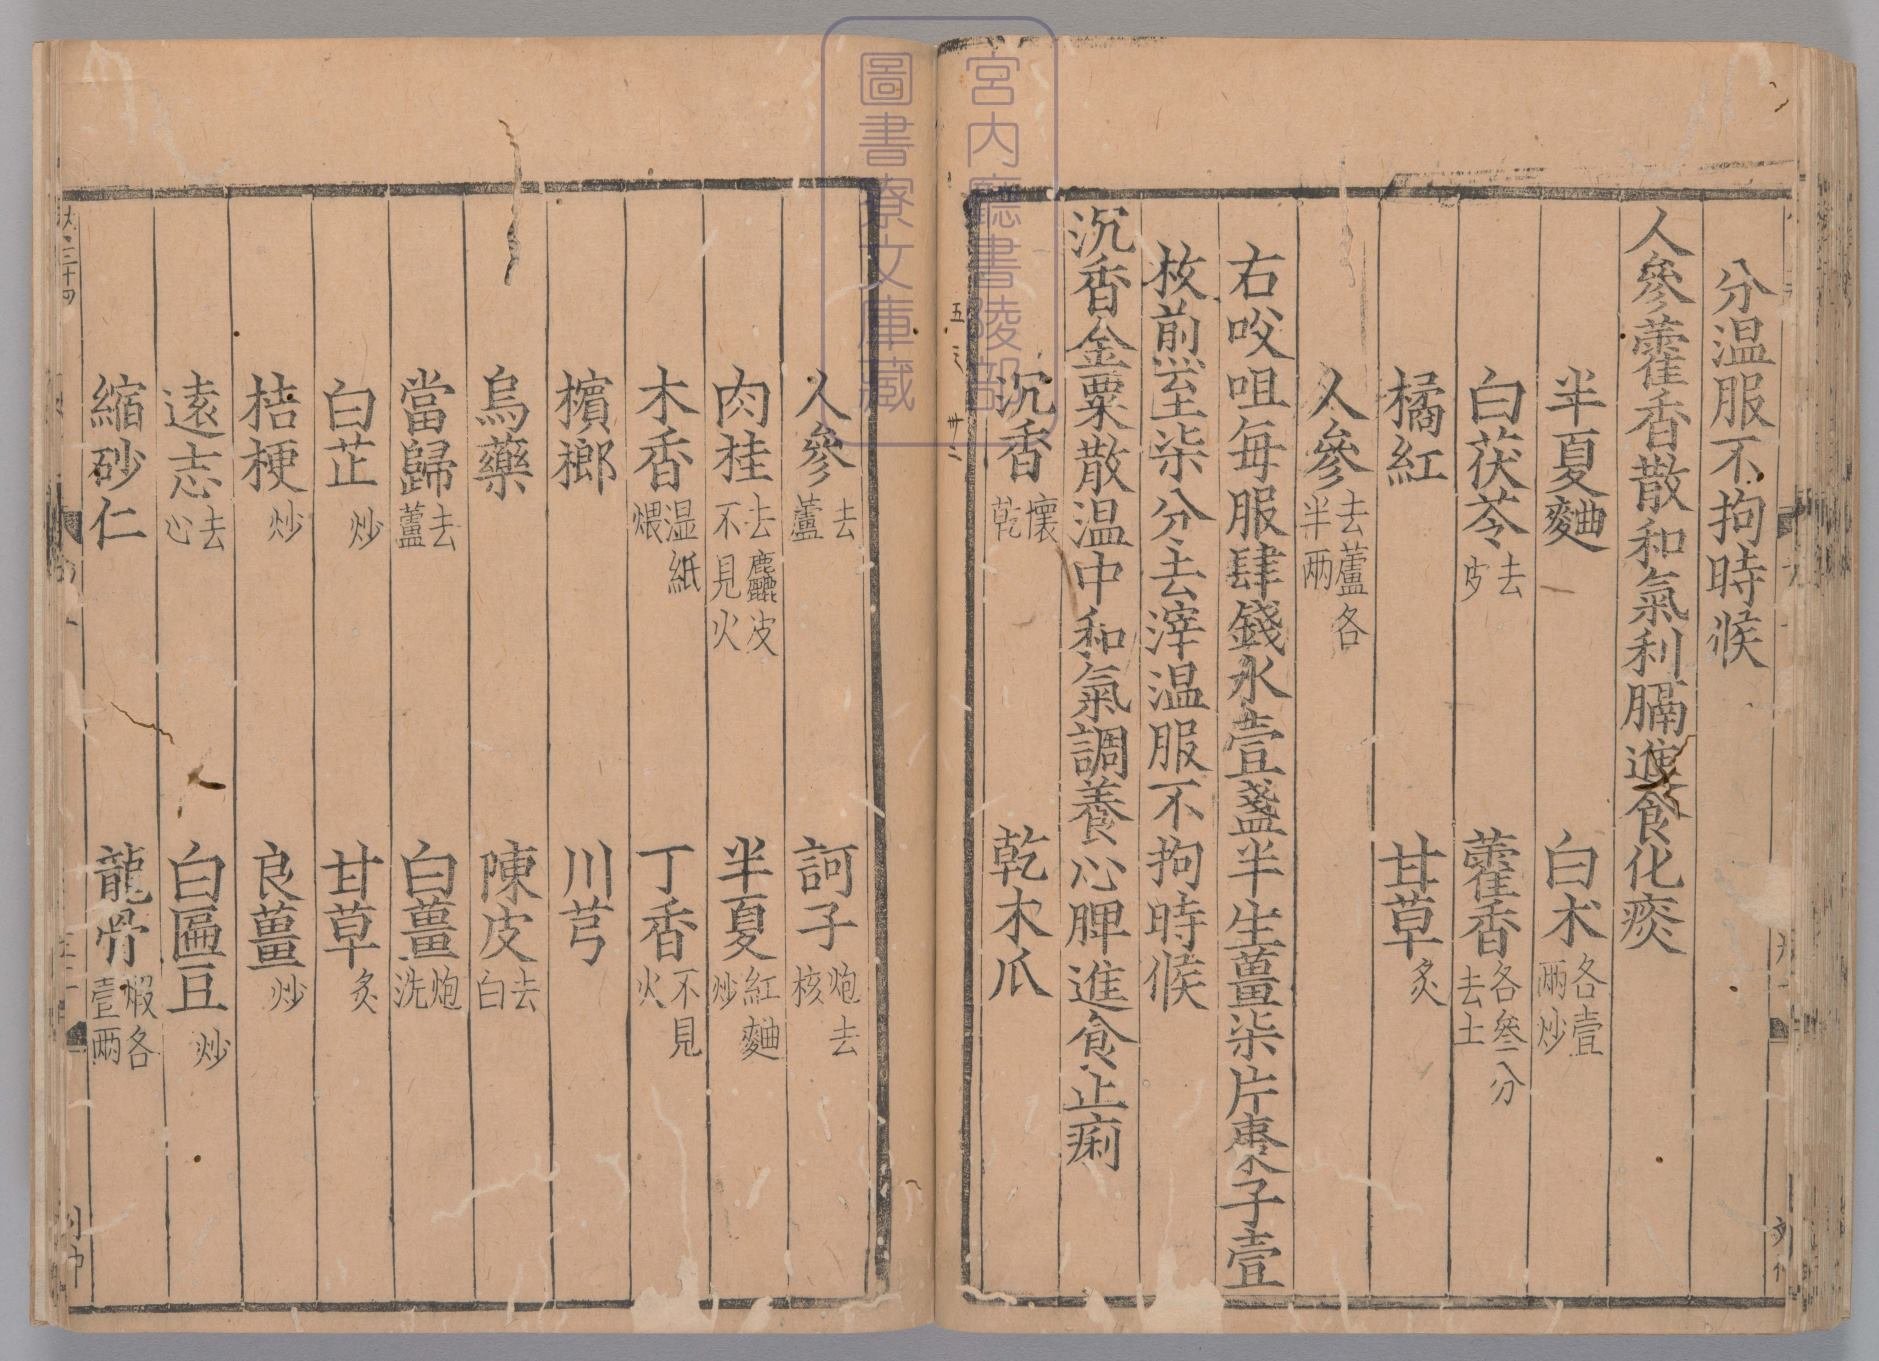 分温服不拘時候
人參藿香散和氣利膈進食化痰
半夏麯　白术各壹兩炒
白茯苓去皮　藿香各叁分去土
橘紅　甘草炙
人參去蘆各半兩
右㕮咀每服肆錢水壹盞半生薑柒片棗子壹
枚煎至柒分去滓温服不拘時候
沉香金粟散温中和氣調養心脾進食止痢
沉香懷乾　乾木瓜
人參去蘆　訶子炮去核
肉桂去麤皮不見火　半夏紅麯炒
木香湿紙煨　丁香不見火
檳榔　川芎
烏藥　陳皮去白
當歸去蘆　白薑炮洗
白芷炒　甘草炙
桔梗炒　良薑炒
遠志去心　白匾豆炒
縮砂仁　龍骨煆各壹兩
宮内廳書陵部
圖書寮文庫藏